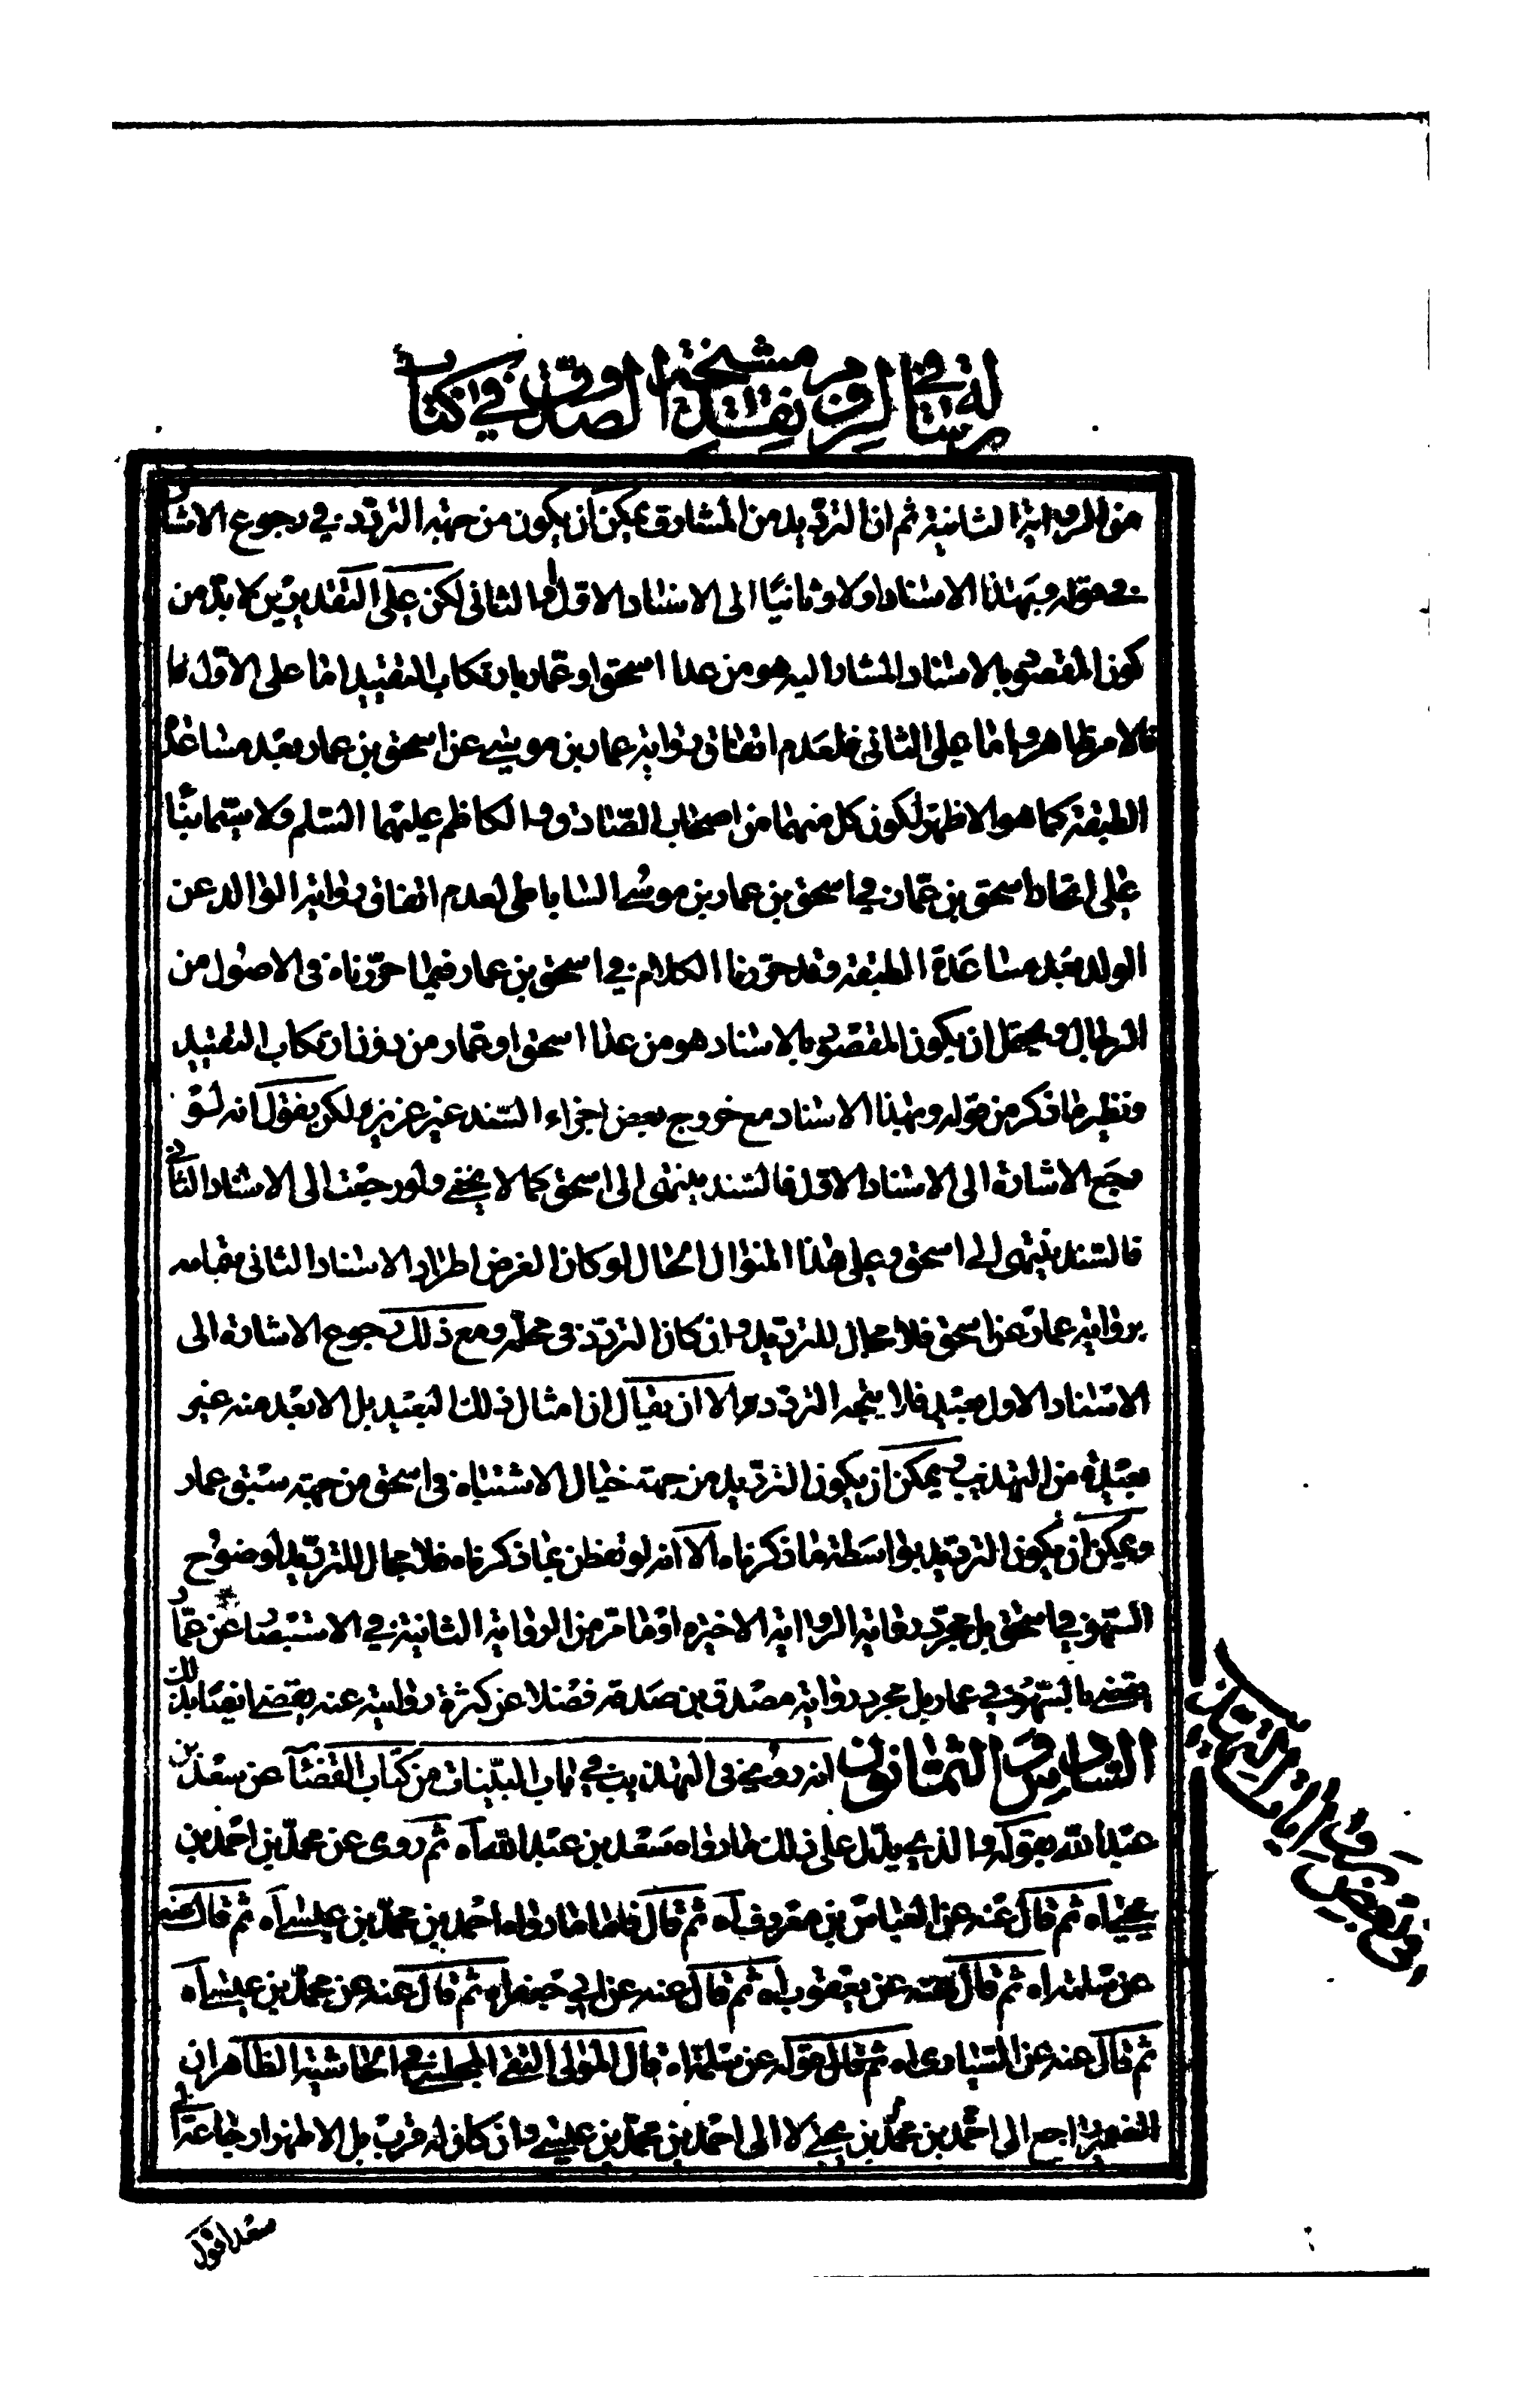 رسالة في لزوم نقد مشيخة الصدوق في كتاب
من الرواية الثانية ثم ان الترديد من المشارق يمكن ان يكون من جهة التردد في رجوع الاشارة
في قوله وبهذا الاسناد اولا وثانيًا الى الاسناد الاول او الثاني لكن على التقديرين لا بدّ من
كون المقصود بالاسناد المشار اليه هو من عدا اسحق او عمار بارتكاب التقييد امّا على الاول
فالامر ظاهر واما على الثاني فلعدم اتفاق رواية عمار بن موسى عن اسحق بن عمار بعد مساعدة
الطبقة كما هو الاظهر لكون كل منهما من اصحاب الصادق والكاظم عليهما السّلم ولا سيّما بناءً
على اتحاد اسحق بن عمار في اسحق بن عمار بن موسى الساباطي لعدم اتفاق رواية الوالد عن
الولد بعد مساعدة الطبقة وقد حرّرنا الكلام في اسحق بن عمار فيما حرّرناه في الاصول من
الرجال ويحتمل ان يكون المقصود بالاسناد هو من عدا اسحق او عمار من دون ارتكاب التقييد
ونظير ما ذكر من قوله وبهذا الاسناد مع خروج بعض اجزاء السّند غير عزيز ولكن يقول انه لو
رجع الاشارة الى الاسناد الاول فالسّند ينتهى الى اسحق كما لا يخفى ولو رجعت الى الاسناد الثاني
فالسّند ينتهى الى اسحق وعلى هذا المنوال الحال لو كان الغرض اطراد الاسناد الثاني بتمامه
برواية عمار عن اسحق فلا مجال للترديد وان كان التردّد في محله ومع ذلك رجوع الاشارة الى
الاسناد الاول بعيد فلا يتجه التردد الا ان يقال ان امثال ذلك البعيد بل الابعد منه غير
بعيدة من التهذيب ويمكن ان يكون الترديد من جهة خيال الاشتباه في اسحق من جهة سبق عمار
ويمكن ان يكون الترديد بواسطة ما ذكرناه الا انه لو تفطن بما ذكرناه فلا مجال للترديد لوضوح
السّهو في اسحق بل مجرّد رواية الرواية الاخيرة او ما مرّ من الرواية الثانية في الاستبصار عن عمّار
يقضى بالسّهو في عمار بل مجرد رواية مصدق بن صدقة فضلا عن كثرة روايته عنه يقضى ايضا بذلك
السادس والثمانون انه روى في التهذيب في باب البيّنات من كتاب القضاء عن سعد بن
عبد الله بقوله والذي يدّل على ذلك ما رواه سعد بن عبد الله آه ثم روى عن محمّد بن احمد بن
يحيى آه ثم قال عنه عن العباس بن معروف آه ثم قال فاما ما رواه احمد بن محمّد بن عيسى آه ثم قال عنه
عن سلمة آه ثم قال عنه عن يعقوب آه ثم قال عنه عن ابي جعفر آه ثم قال عنه عن محمّد بن عيسى آه
ثم قال عنه عن السّيارى آه ثم قال قوله عن سلمة آه قال المولى التقى المجلسى في الحاشية الظاهر ان
الضمير راجع الى احمد بن محمّد بن يحيى لا الى احمد بن محمّد بن عيسى وان كان له قرب بل الاظهر ارجاعه الى
سعد اقول